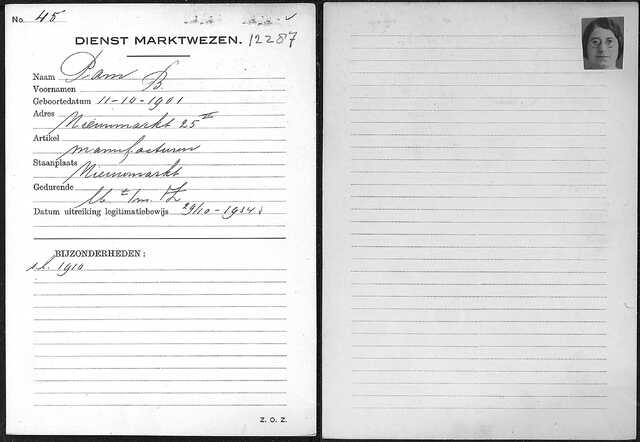 No. 45
DIENST MARKTWEZEN. 12287
Naam Pam
Voornamen B.
Geboortedatum 11-10-1901
Adres Nieuwmarkt 25 II
Artikel manufacturen
Staanplaats Nieuwmarkt
Gedurende M t/m. Z
Datum uitreiking legitimatiebewijs 29/10-1934
BIJZONDERHEDEN;
1910
Z. O. Z.